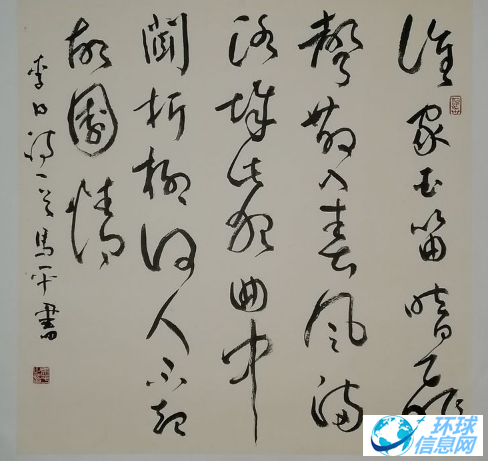 誰家玉笛暗飛
聲散入春風滿
洛城此夜曲中
聞折柳何人不起
故園情
李白詩一首馬一平書
环球
信息网